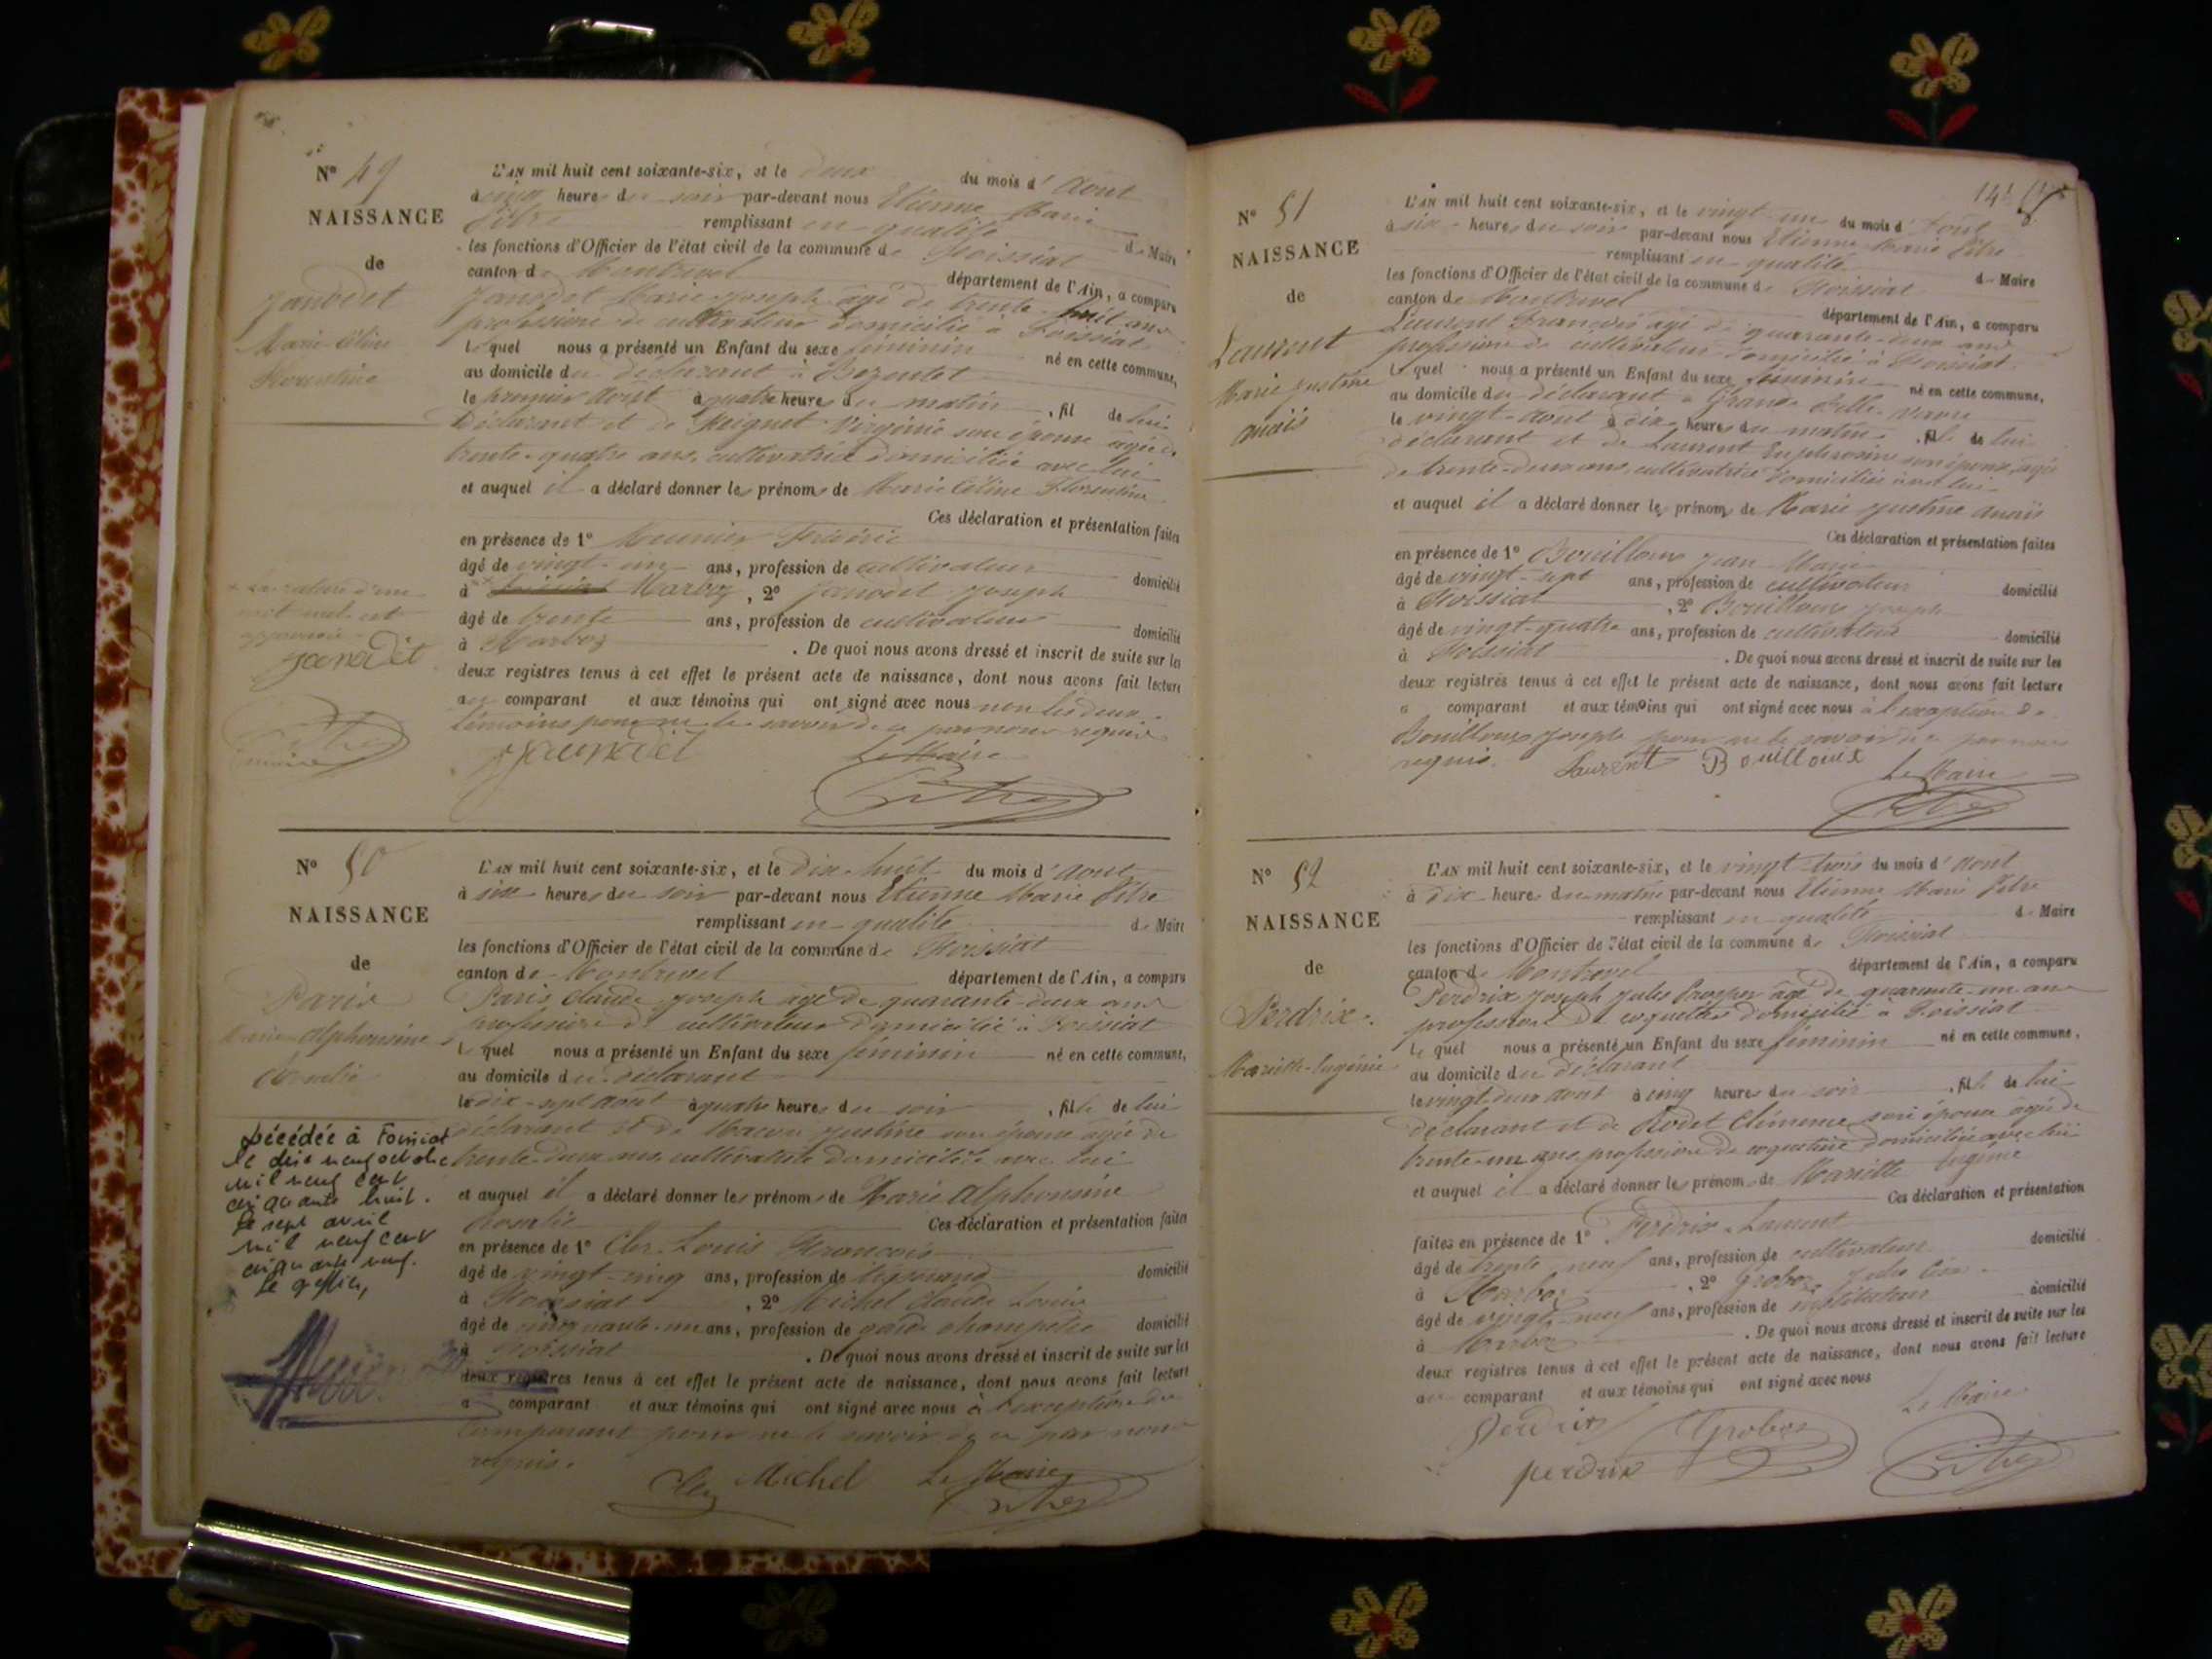 N° 49
NAISSANCE
de
Janodet
Marie Céline
Florentine
L'AN mil huit cent soixante-six, et le deux du mois d'Aout
à cinq heures du soir par-devant nous Etienne Marie
Pitre remplissant en qualité de Maire
les fonctions d'Officier de l'état civil de la commune de Foissiat
canton de Montrevel département de l'Ain, a comparu
Janodet Marie Joseph âgé de trente-huit ans
profession de cultivateur domicilié à Foissiat
Lequel nous a présenté un Enfant du sexe féminin né en cette commune,
au domicile du déclarant à
le premier Aout à quatre heures du matin, fil de lui
déclarant et de Virginie son épouse âgée de
trente-quatre ans, cultivatrice domiciliée avec lui
et auquel il a déclaré donner les prénoms de Marie Céline Florentine
Ces déclaration et présentation faites
en présence de 1° Meunier Frédéric
âgé de vingt-cinq ans, profession de cultivateur domicilié
à Marboz, 2° Janodet Joseph
âgé de trente ans, profession de cultivateur domicilié
à Marboz. De quoi nous avons dressé et inscrit de suite sur les
deux registres tenus à cet effet le présent acte de naissance, dont nous avons fait lecture
au comparant et aux témoins qui ont signé avec nous non les deux
témoins pour ne le savoir de ce par nous requis
+ La rature d'un
mot nul est
approuvée
Janodet
Pitre
maire
Janodet Le Maire
Pitre
N° 50
NAISSANCE
de
Paris
Marie Alphonsine
Rosalie
L'AN mil huit cent soixante-six, et le dix-huit du mois d'Aout
à six heures du soir par-devant nous Etienne Marie Pitre
remplissant en qualité de Maire
les fonctions d'Officier de l'état civil de la commune de Foissiat
canton de Montrevel département de l'Ain, a comparu
Paris Claude Joseph âgé de quarante-deux ans
profession de cultivateur domicilié à Foissiat
Lequel nous a présenté un Enfant du sexe féminin né en cette commune,
au domicile du déclarant
le dix-sept aout à quatre heures du soir, fille de lui
déclarant et de Justine son épouse âgée de
trente-deux ans, cultivatrice domiciliée avec lui
et auquel il a déclaré donner les prénoms de Marie Alphonsine
Rosalie Ces déclaration et présentation faites
en présence de 1° Cler Louis François
âgé de vingt-cinq ans, profession de tisserand domicilié
à Foissiat, 2° Michel Claude Louis
âgé de cinquante-un ans, profession de garde champêtre domicilié
à Foissiat. De quoi nous avons dressé et inscrit de suite sur les
deux registres tenus à cet effet le présent acte de naissance, dont nous avons fait lecture
a comparant et aux témoins qui ont signé avec nous à l'exception du
comparant pour ne le savoir de ce par nous
requis.
Cler Michel Le Maire
Pitre
Décédée à Foissiat
le dix neuf octobre
mil neuf cent
cinquante huit.
Le sept avril
mil neuf cent
cinquante neuf.
Le greffier,
N° 51
NAISSANCE
de
Laurent
Marie Justine
Anaïs
L'AN mil huit cent soixante-six, et le vingt-un du mois d'Aout
à six heures du soir par-devant nous Etienne Marie Pitre
remplissant en qualité de Maire
les fonctions d'Officier de l'état civil de la commune de Foissiat
canton de Montrevel département de l'Ain, a comparu
Laurent François âgé de quarante-deux ans
profession de cultivateur domicilié à Foissiat
Lequel nous a présenté un Enfant du sexe féminin né en cette commune,
au domicile du déclarant à Grande
le vingt-aout à dix heures du matin, fille de lui
déclarant et de Laurent Euphrosine son épouse, âgée
de trente-deux ans, cultivatrice domiciliée avec lui
et auquel il a déclaré donner les prénoms de Marie Justine Anaïs
Ces déclaration et présentation faites
en présence de 1° Bouilloux Jean Marie
âgé de vingt-sept ans, profession de cultivateur domicilié
à Foissiat, 2° Bouilloux Joseph
âgé de vingt-quatre ans, profession de cultivateur domicilié
à Foissiat. De quoi nous avons dressé et inscrit de suite sur les
deux registres tenus à cet effet le présent acte de naissance, dont nous avons fait lecture
a comparant et aux témoins qui ont signé avec nous à l'exception de
Bouilloux Joseph pour ne le savoir de ce par nous
requis. Laurent Bouilloux Le Maire
Pitre
N° 52
NAISSANCE
de
Perdrix
Mariette Eugénie
L'AN mil huit cent soixante-six, et le vingt-trois du mois d'Aout
à dix heures du matin par-devant nous Etienne Marie Pitre
remplissant en qualité de Maire
les fonctions d'Officier de l'état civil de la commune de Foissiat
canton de Montrevel département de l'Ain, a comparu
Perdrix Joseph Jules Prosper âgé de quarante-un ans
profession de coquetier domicilié à Foissiat
Lequel nous a présenté un Enfant du sexe féminin né en cette commune,
au domicile du déclarant
le vingt-deux aout à cinq heures du soir, fille de lui
déclarant et de Rodet Clémence son épouse âgée de
trente-un ans, profession de coquetière domiciliée avec lui
et auquel il a déclaré donner les prénoms de Mariette Eugénie
Ces déclaration et présentation
faites en présence de 1° Perdrix Laurent
âgé de trente-neuf ans, profession de cultivateur domicilié
à Marboz, 2° Groboz Jules
âgé de vingt-neuf ans, profession de instituteur domicilié
à Marboz. De quoi nous avons dressé et inscrit de suite sur les
deux registres tenus à cet effet le présent acte de naissance, dont nous avons fait lecture
au comparant et aux témoins qui ont signé avec nous
Le Maire
Perdrix Groboz
perdrix Pitre